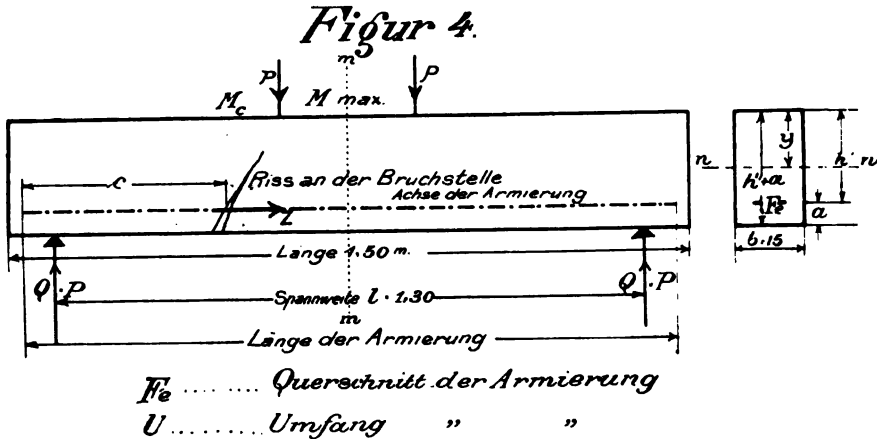 Figur 4.
m
P P
M_c M max.
y
n h'+a h' n
c Riss an der Bruchstelle
Achse der Armierung
L
Fe a
Länge 1,50 m. b.15
Q.P Spannweite l. 1,30 Q.P
m
Länge der Armierung
Fe ........ Querschnitt der Armierung
U ........ Umfang " "